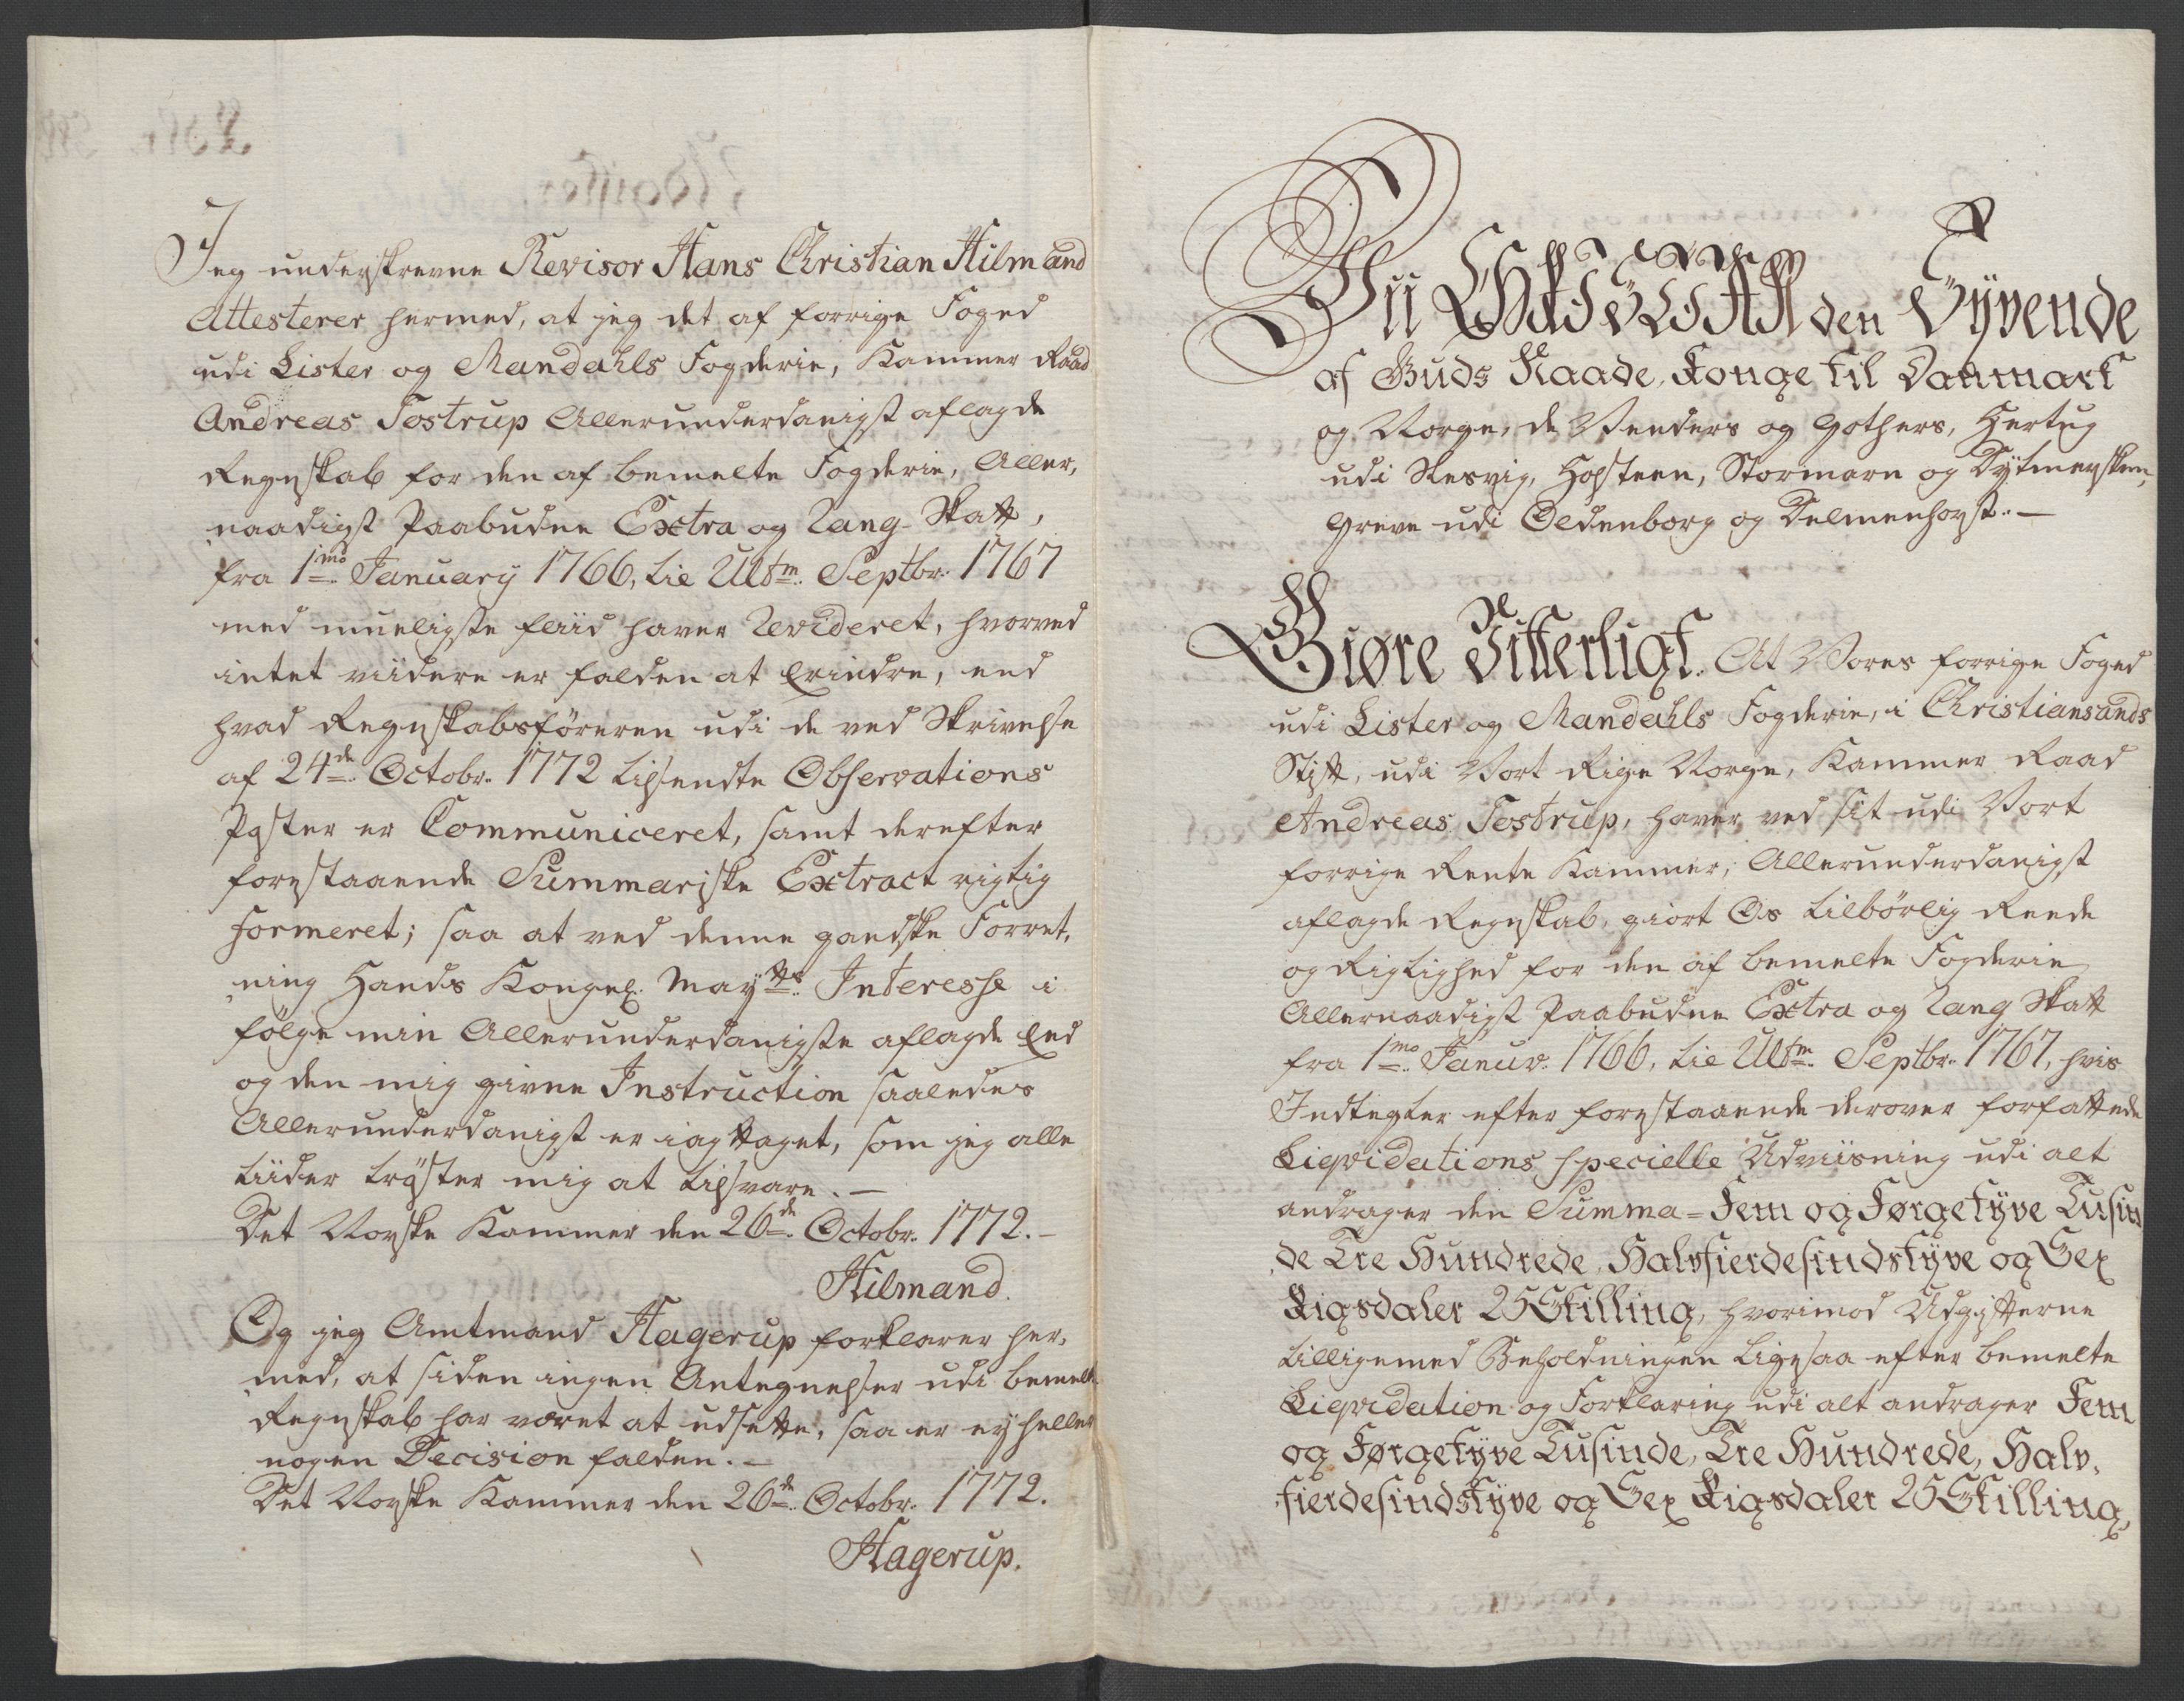 Jeg underskrevne Revisor Hans Christian Hilmand
Attesterer hermed, at jeg det af forrige Foged
udi Lister og Mandahls Fogderie, Kammer Raad
Andreas Tostrup Allerunderdanigst aflagde
Regnskab for den af bemelte Fogderie, Aller,
naadigst Paabudne Extra og Rang-Skatt,
fra 1mo January 1766, tie Ultm. Septbr. 1767
med mueligste fliid haver Revideret, hvorved
intet viidere er falden at Erindre, end
hvad Regnskabsföreren udi de ved Skrivelse
af 24de Octobr. 1772 tilsendte Observations
Poster er Communiceret, samt derefter
forestaaende Summariske Extract rigtig
formeret; saa at ved denne gandske Forret,
ning Hands Kongel. Maytts. Interesse i
fölge min Allerunderdanigste aflagde Eed
og den mig givne Instruction saaledes
Allerunderdanigst er iagttaget, som jeg alle
tiider tröster mig at tilsvare.—
Det Norske Kammer den 26de Octobr. 1772.—
Hilmand.
Og jeg Amtmand Hagerup forklarer her,
med, at siden ingen Antegnelser udi bemelte
Regnskab har været at udsette, saa er ey heller
nogen Decision falden.—
Det Norske Kammer den 26de Octobr. 1772.
Hagerup.
Vii CHRISTIAN den Syvende
af Guds Naade, Konge til Danmark
og Norge, de Venders og Gothers, Hertug
udi Slesvig, Holsteen, Stormarn og Dytmersken,
Greve udi Oldenborg og Delmenhorst.—
Giøre Vitterligt. At Vores forrige Foged
udi Lister og Mandahls Fogderie, i Christiansands
Stift, udi Vort Rige Norge, Kammer Raad
Andreas Tostrup, haver ved sit udi Vort
forrige Rente Kammer, Allerunderdanigst
aflagde Regnskab, giort Os tilbörlig Reede
og Rigtighed for den af bemelte Fogderie
Allernaadigst Paabudne Extra og Rang Skatt
fra 1mo Januv. 1766, tie Ultm. Septbr. 1767, hvis
Indtegter efter forestaaende derover forfattede
Liqvidations specielle Udviisning udi alt
andrager den Summa = Fem og Førgetyve Tusin
de Tre Hundrede, Halvfierdesindstyve og Sex
Rigsdaler 25 Skilling, hvorimod Udgifterne
tilligemed Beholdningen ligesaa efter bemelte
Liqvidation og Forklaring udi alt andrager Fem
og Førgetyve Tusinde, Tre Hundrede, Halv,
fierdesindstyve og Sex Rigsdaler 25 Skilling,